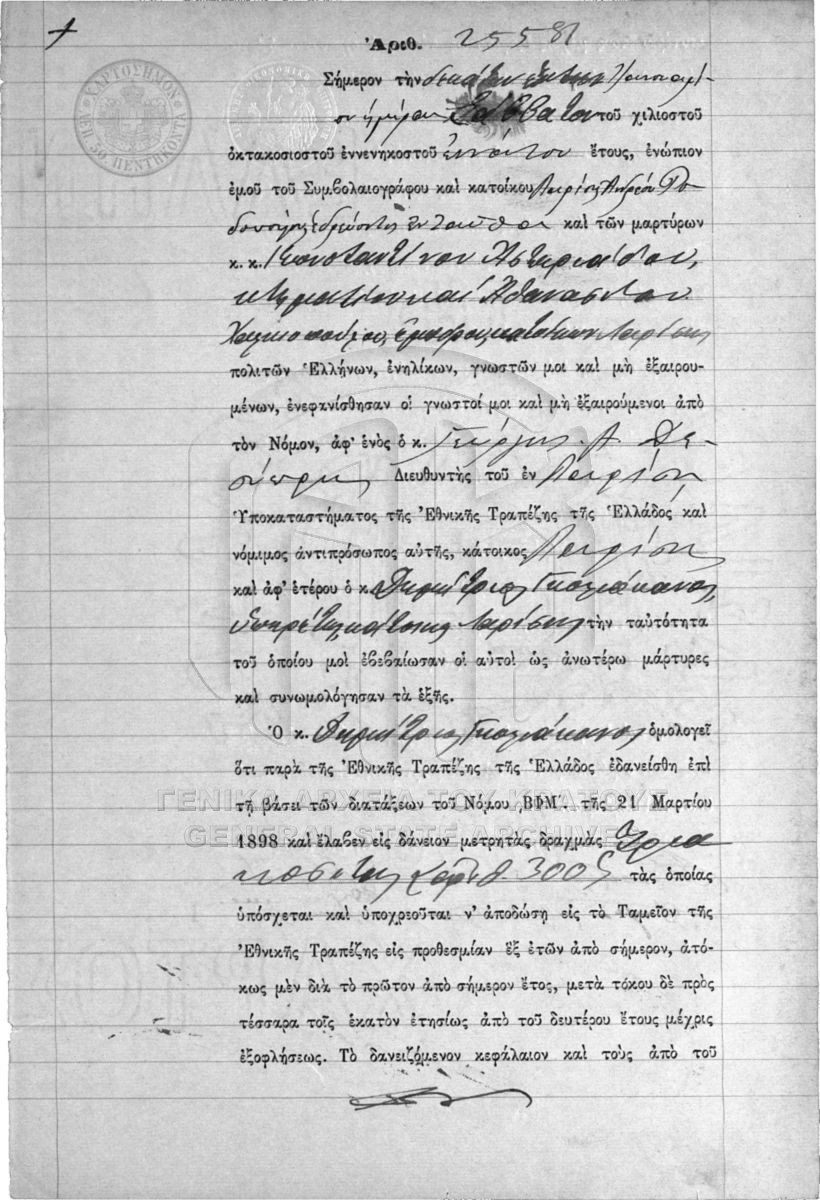 Ἀριθ. 25581
Σήμερον τὴν δεκάτην ἕκτην Ἰανουαρί-
ου ἡμέραν Σάββατον τοῦ χιλιοστοῦ
ὀκτακοσιοστοῦ ἐννενηκοστοῦ ἐννάτου ἔτους, ἐνώπιον
ἐμοῦ τοῦ Συμβολαιογράφου καὶ κατοίκου Λαρίσης Ἀνδρέου
ἐνταῦθα καὶ τῶν μαρτύρων
κ. κ. Κωνσταντίνου Ἀστεριάδου,
κτηματίου καὶ Ἀθανασίου
ἐμπόρου, κατοίκων Λαρίσης
πολιτῶν Ἑλλήνων, ἐνηλίκων, γνωστῶν μοι καὶ μὴ ἐξαιρου-
μένων, ἐνεφανίσθησαν οἱ γνωστοί μοι καὶ μὴ ἐξαιρούμενοι ἀπὸ
τὸν Νόμον, ἀφ' ἑνὸς ὁ κ. Γεώργιος Α.
Διευθυντὴς τοῦ ἐν Λαρίσῃ
Ὑποκαταστήματος τῆς Ἐθνικῆς Τραπέζης τῆς Ἑλλάδος καὶ
νόμιμος ἀντιπρόσωπος αὐτῆς, κάτοικος Λαρίσης
καὶ ἀφ' ἑτέρου ὁ κ. Δημήτριος Γκολιάκανος,
ὑπηρέτης, κάτοικος Λαρίσης τὴν ταὐτότητα
τοῦ ὁποίου μοὶ ἐβεβαίωσαν οἱ αὐτοὶ ὡς ἀνωτέρω μάρτυρες
καὶ συνωμολόγησαν τὰ ἑξῆς.
Ὁ κ. Δημήτριος Γκολιάκανος ὁμολογεῖ
ὅτι παρὰ τῆς Ἐθνικῆς Τραπέζης τῆς Ἑλλάδος ἐδανείσθη ἐπὶ
τῇ βάσει τῶν διατάξεων τοῦ Νόμου ͵ΒΦΜ΄. τῆς 21 Μαρτίου
1898 καὶ ἔλαβεν εἰς δάνειον μετρητὰς δραχμὰς Τρια
κοσίας ἀριθ. 300 τὰς ὁποίας
ὑπόσχεται καὶ ὑποχρεοῦται ν' ἀποδώσῃ εἰς τὸ Ταμεῖον τῆς
Ἐθνικῆς Τραπέζης εἰς προθεσμίαν ἓξ ἐτῶν ἀπὸ σήμερον, ἀτό-
κως μὲν διὰ τὸ πρῶτον ἀπὸ σήμερον ἔτος, μετὰ τόκου δὲ πρὸς
τέσσαρα τοῖς ἑκατὸν ἐτησίως ἀπὸ τοῦ δευτέρου ἔτους μέχρις
ἐξοφλήσεως. Τὸ δανειζόμενον κεφάλαιον καὶ τοὺς ἀπὸ τοῦ
ΧΑΡΤΟΣΗΜΟΝ
ΛΕΠ. 50 ΠΕΝΤΗΚΟΝΤΑ
ΓΕΝΙΚΑ ΑΡΧΕΙΑ ΤΟΥ ΚΡΑΤΟΥΣ
GENERAL STATE ARCHIVES